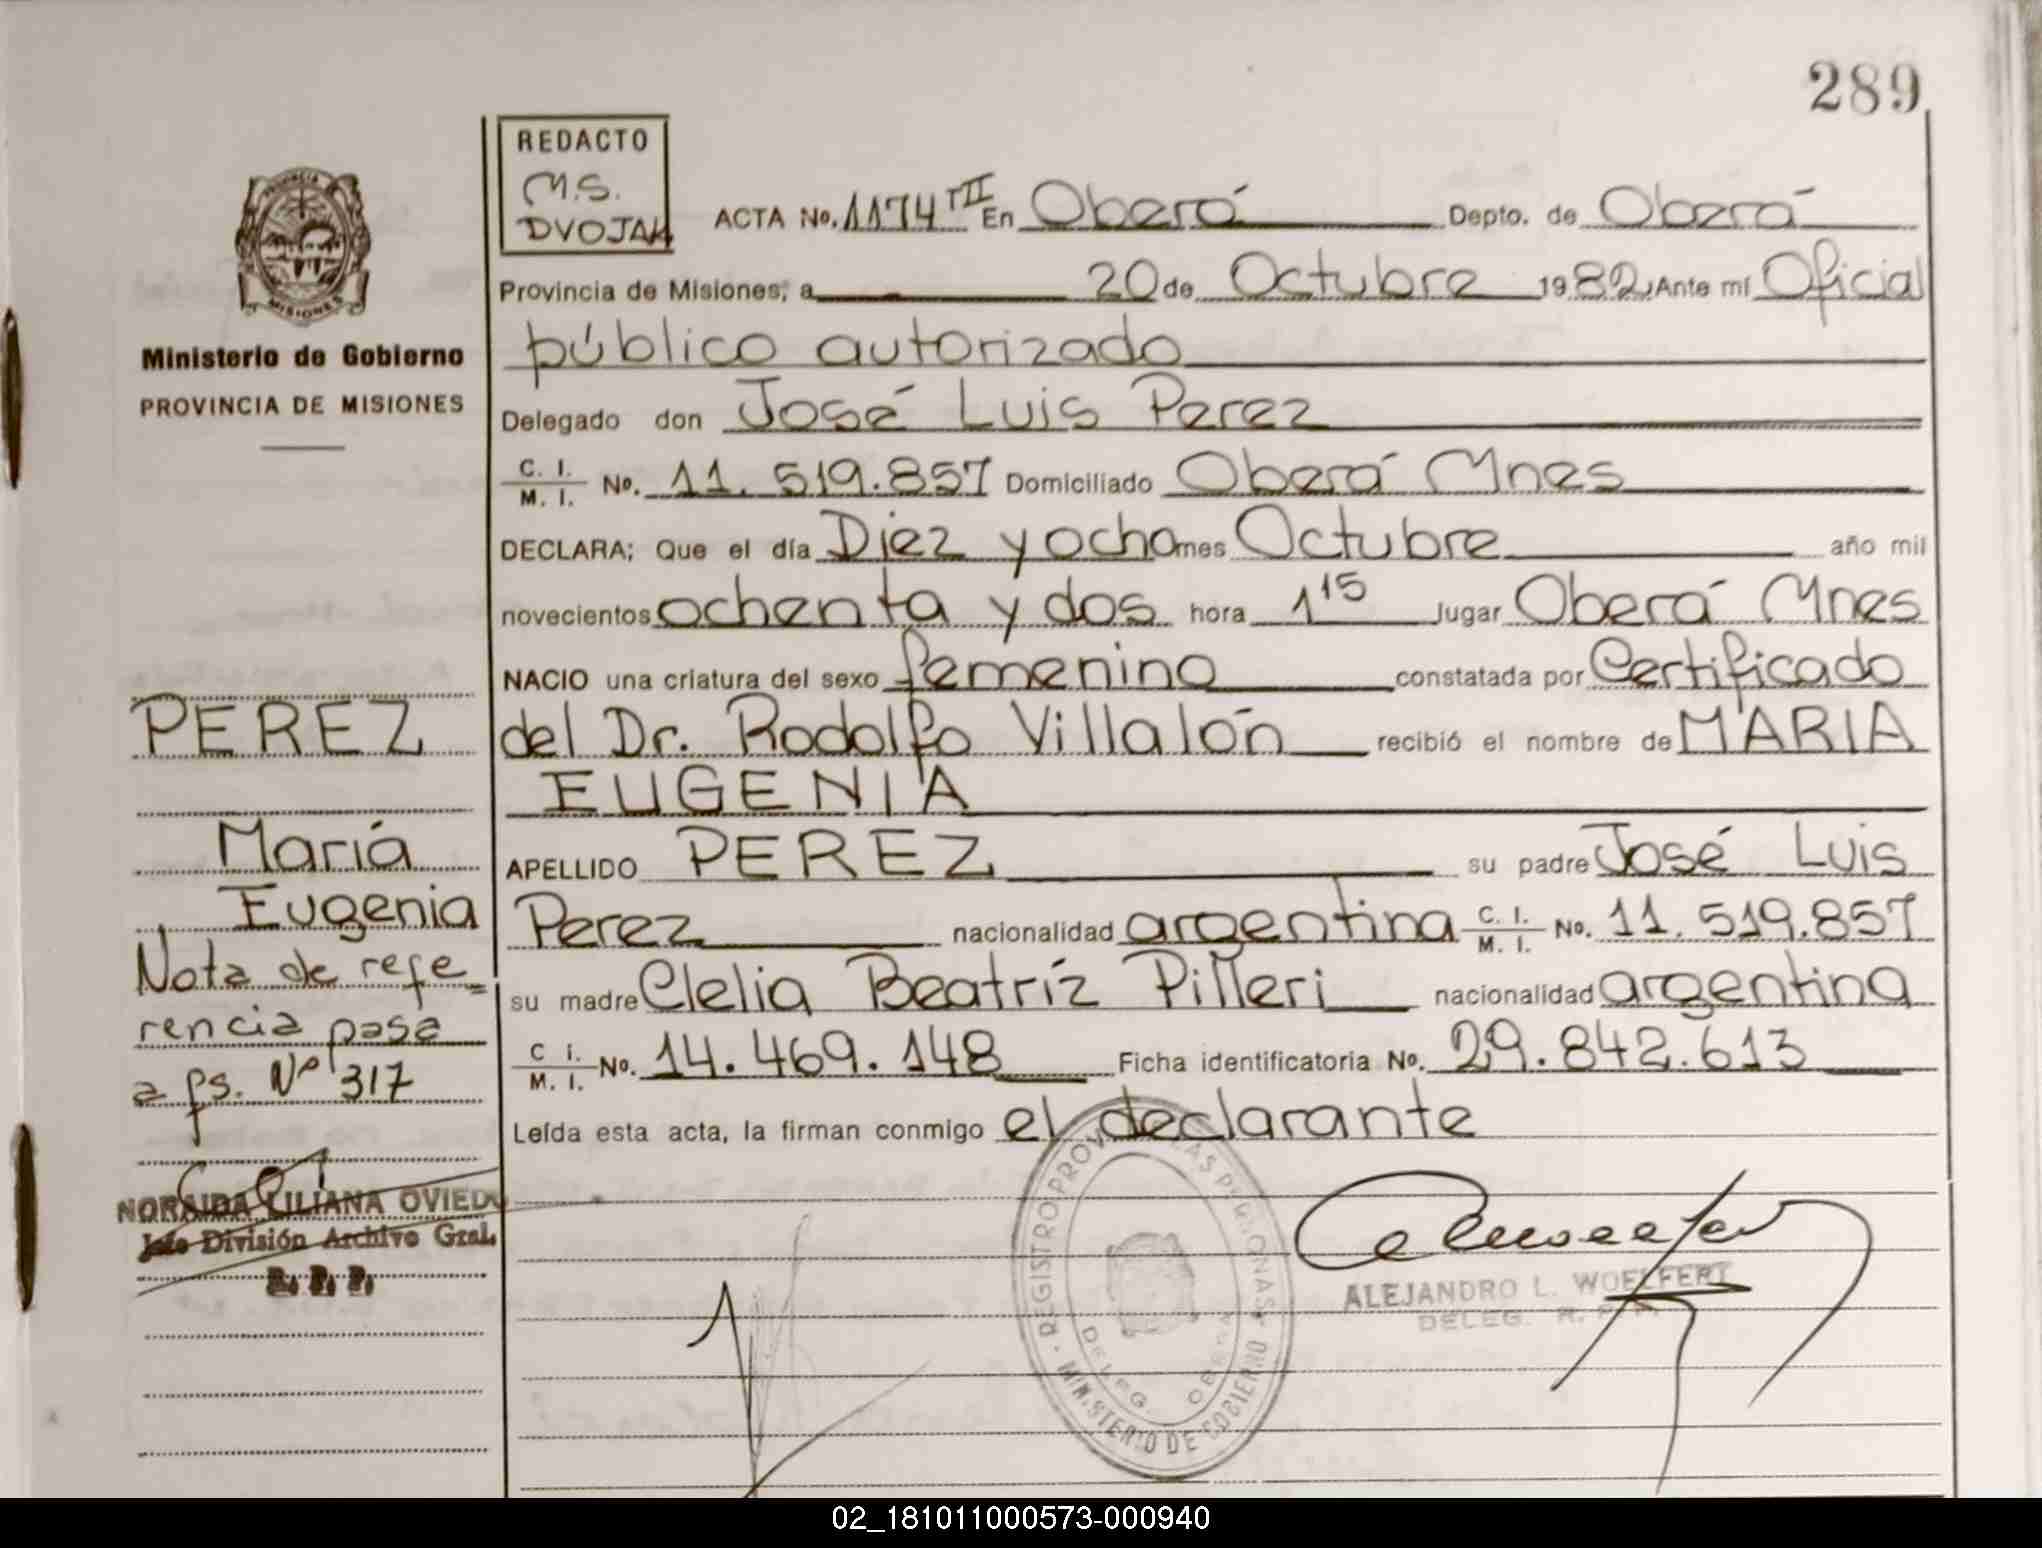 289
REDACTO
M.S.
DVOJAK
ACTA No. 1174 TII En Oberá Depto. de Oberá
Provincia de Misiones, a 20 de Octubre 1982, Ante mí Oficial
público autorizado
Delegado don José Luis Perez
C. I. / M. I. No. 11.519.857 Domiciliado Oberá Mnes
DECLARA; Que el día Diez y ocho mes Octubre año mil
novecientos ochenta y dos hora 1 15 lugar Oberá Mnes
NACIO una criatura del sexo femenino constatada por Certificado
del Dr. Rodolfo Villalón recibió el nombre de MARIA
EUGENIA
APELLIDO PEREZ su padre José Luis
Perez nacionalidad argentina C. I. / M. I. No. 11.519.857
su madre Clelia Beatríz Pilleri nacionalidad argentina
C I. / M. I. No. 14.469.148 Ficha identificatoria No. 29.842.613
Leída esta acta, la firman conmigo el declarante
PROVINCIA DE
MISIONES
Ministerio de Gobierno
PROVINCIA DE MISIONES
PEREZ
María
Eugenia
Nota de refe=
rencia pasa
a fs. Nº 317
NORAIDA LILIANA OVIEDO
Jefe División Archivo Gral.
R. P. P.
REGISTRO PROV LAS PERSONAS
MINISTERIO DE GOBIERNO
DELEG. OBERA
ALEJANDRO L. WOELFERT
DELEG. R. P. P.
02_181011000573-000940